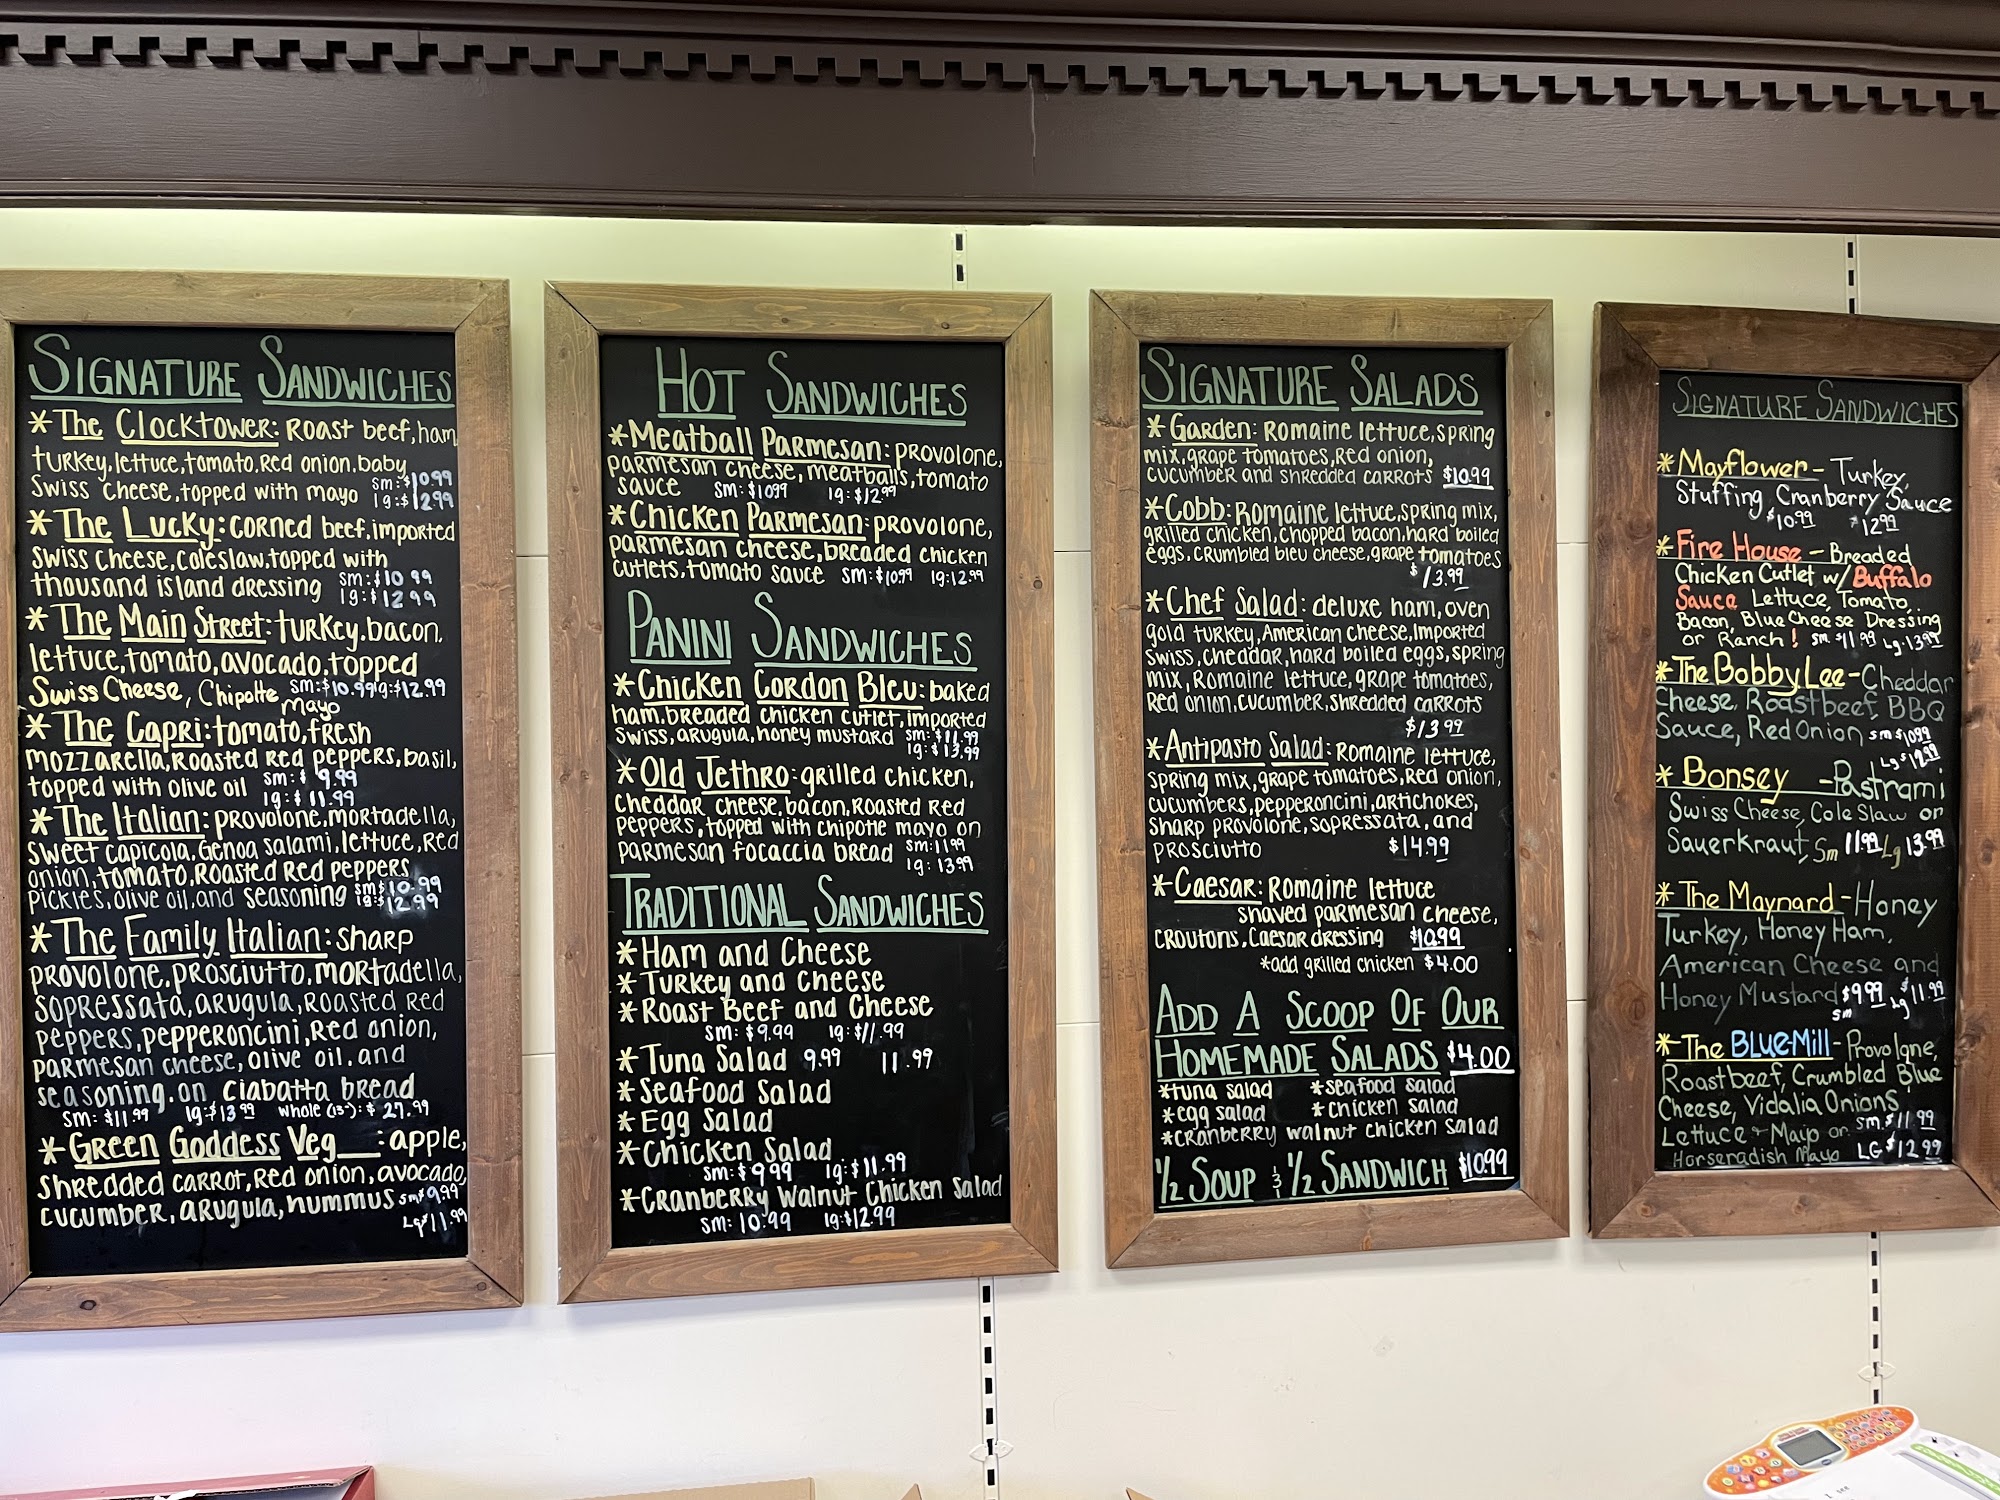 SIGNATURE SANDWICHES
* The Clocktower: Roast beef, ham
turkey, lettuce, tomato, Red onion, baby
Swiss cheese, topped with mayo sm: $10.99
lg: $12.99
* The Lucky: corned beef, imported
Swiss cheese, coleslaw, topped with
thousand island dressing sm: $10.99
lg: $12.99
* The Main Street: turkey, bacon,
lettuce, tomato, avocado, topped
Swiss Cheese, Chipotle sm: $10.99 lg: $12.99
Mayo
* The Capri: tomato, fresh
mozzarella, Roasted Red peppers, basil,
topped with olive oil sm: $9.99
lg: $11.99
* The Italian: provolone, mortadella,
sweet capicola, Genoa salami, lettuce, Red
onion, tomato, Roasted Red peppers
pickles, olive oil, and seasoning sm $10.99
lg: $12.99
* The Family Italian: sharp
provolone, prosciutto, mortadella,
sopressata, arugula, Roasted Red
peppers, pepperoncini, Red onion,
parmesan cheese, olive oil, and
seasoning. on ciabatta bread
sm: $11.99 lg: $13.99 whole (13"): $27.99
* Green Goddess Veg : apple,
shredded carrot, Red onion, avocado,
cucumber, arugula, hummus sm $9.99
Lg $11.99
HOT SANDWICHES
* Meatball Parmesan: provolone,
parmesan cheese, meatballs, tomato
sauce sm: $10.99 lg: $12.99
* Chicken Parmesan: provolone,
parmesan cheese, breaded chicken
cutlets, tomato sauce sm: $10.99 lg: 12.99
PANINI SANDWICHES
* Chicken Cordon Bleu: baked
ham, breaded chicken cutlet, imported
swiss, arugula, honey mustard sm: $11.99
lg: $13.99
* Old Jethro: grilled chicken,
cheddar cheese, bacon, Roasted Red
peppers, topped with chipotle mayo on
parmesan focaccia bread sm: 11.99
lg: 13.99
TRADITIONAL SANDWICHES
* Ham and Cheese
* Turkey and Cheese
* Roast Beef and Cheese
sm: $9.99 lg: $11.99
* Tuna Salad 9.99 11.99
* Seafood Salad
* Egg Salad
* Chicken Salad
sm: $9.99 lg: $11.99
* Cranberry Walnut Chicken Salad
sm: 10.99 lg: $12.99
SIGNATURE SALADS
* Garden: Romaine lettuce, spring
mix, grape tomatoes, Red onion,
cucumber and shredded carrots $10.99
* Cobb: Romaine lettuce, spring mix,
grilled chicken, chopped bacon, hard boiled
eggs, crumbled bleu cheese, grape tomatoes
$13.99
* Chef Salad: deluxe ham, oven
gold turkey, American cheese, Imported
Swiss, cheddar, hard boiled eggs, spring
mix, Romaine lettuce, grape tomatoes,
Red onion, cucumber, shredded carrots
$13.99
* Antipasto Salad: Romaine lettuce,
spring mix, grape tomatoes, Red onion,
cucumbers, pepperoncini, artichokes,
sharp provolone, sopressata, and
prosciutto $14.99
* Caesar: Romaine lettuce
shaved parmesan cheese,
croutons, Caesar dressing $10.99
*add grilled chicken $4.00
ADD A SCOOP OF OUR
HOMEMADE SALADS $4.00
*tuna salad *seafood salad
*egg salad *chicken salad
*cranberry walnut chicken salad
1/2 SOUP & 1/2 SANDWICH $10.99
SIGNATURE SANDWICHES
* Mayflower - Turkey,
Stuffing Cranberry Sauce
$10.99 $12.99
* Fire House - Breaded
Chicken Cutlet w/ Buffalo
Sauce Lettuce, Tomato,
Bacon, Blue Cheese Dressing
or Ranch! sm $11.99 Lg-13.99
* The Bobby Lee - Cheddar
Cheese, Roastbeef, BBQ
Sauce, Red Onion sm $10.99
Lg $12.99
* Bonsey - Pastrami
Swiss Cheese, Cole Slaw or
Sauerkraut, Sm 11.99 Lg 13.99
* The Maynard - Honey
Turkey, Honey Ham,
American Cheese and
Honey Mustard $9.99 $11.99
sm Lg
* The BLUE-Mill - Provolone,
Roastbeef, Crumbled Blue
Cheese, Vidalia Onions
Lettuce + Maijo or sm. $11.99
Horseradish Mayo LG $12.99
I see